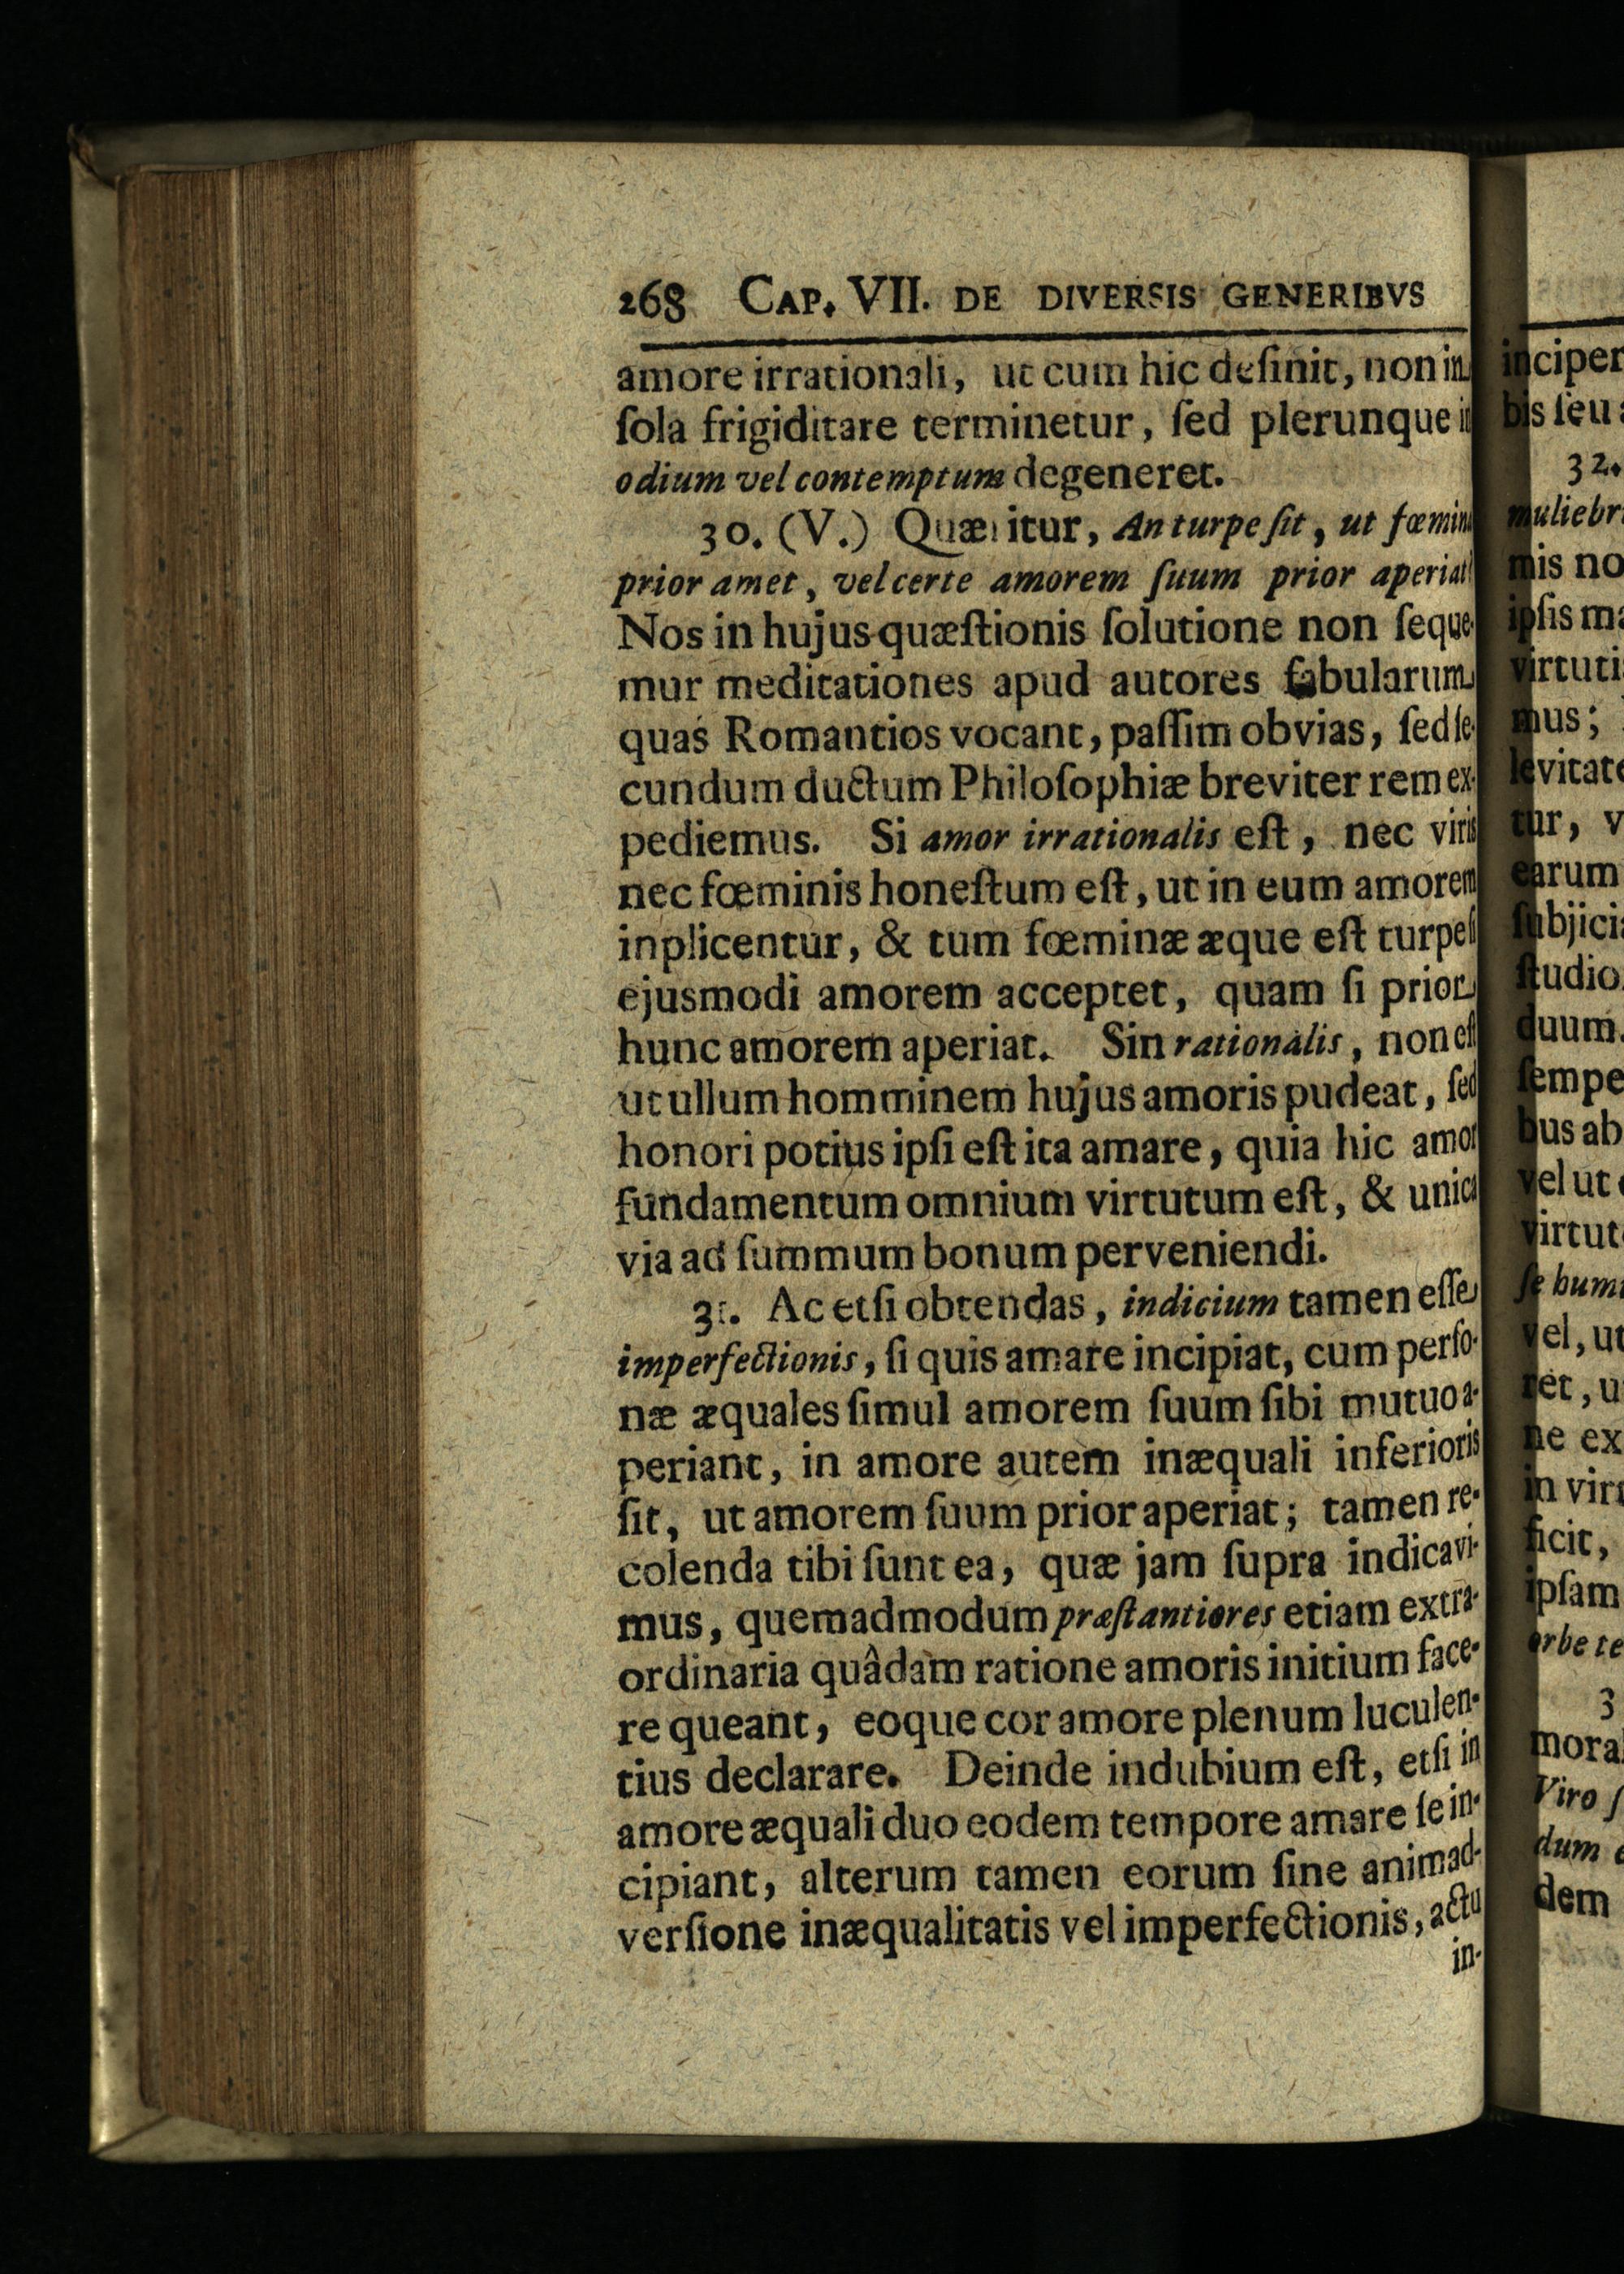 268 CAP. VII. DE DIVERSIS GENERIBVS
amore irrationali, ut cum hic deſinit, non in
ſola frigiditare terminetur, ſed plerunque in
odium vel contemptum degeneret.
30. (V.) Quæritur, An turpe ſit, ut fœmina
prior amet, vel certe amorem ſuum prior aperiat?
Nos in hujus quæſtionis ſolutione non ſeque-
mur meditationes apud autores fabularum
quas Romantios vocant, paſſim obvias, ſed ſe-
cundum ductum Philoſophiæ breviter rem ex-
pediemus. Si amor irrationalis eſt, nec viris
nec fœminis honeſtum eſt, ut in eum amorem
inplicentur, & tum fœminæ æque eſt turpe ſi
ejusmodi amorem acceptet, quam ſi prior
hunc amorem aperiat. Sin rationalis, non eſt
ut ullum homminem hujus amoris pudeat, ſed
honori potius ipſi eſt ita amare, quia hic amor
fundamentum omnium virtutum eſt, & unica
via ad ſummum bonum perveniendi.
31. Ac etſi obtendas, indicium tamen eſſe
imperfectionis, ſi quis amare incipiat, cum perſo-
næ æquales ſimul amorem ſuum ſibi mutuo a-
periant, in amore autem inæquali inferioris
ſit, ut amorem ſuum prior aperiat; tamen re-
colenda tibi ſunt ea, quæ jam ſupra indicavi-
mus, quemadmodum præſtantiores etiam extra-
ordinaria quâdam ratione amoris initium face-
re queant, eoque cor amore plenum luculen-
tius declarare. Deinde indubium eſt, etſi in
amore æquali duo eodem tempore amare ſe in-
cipiant, alterum tamen eorum ſine animad-
verſione inæqualitatis vel imperfectionis, actu
in-